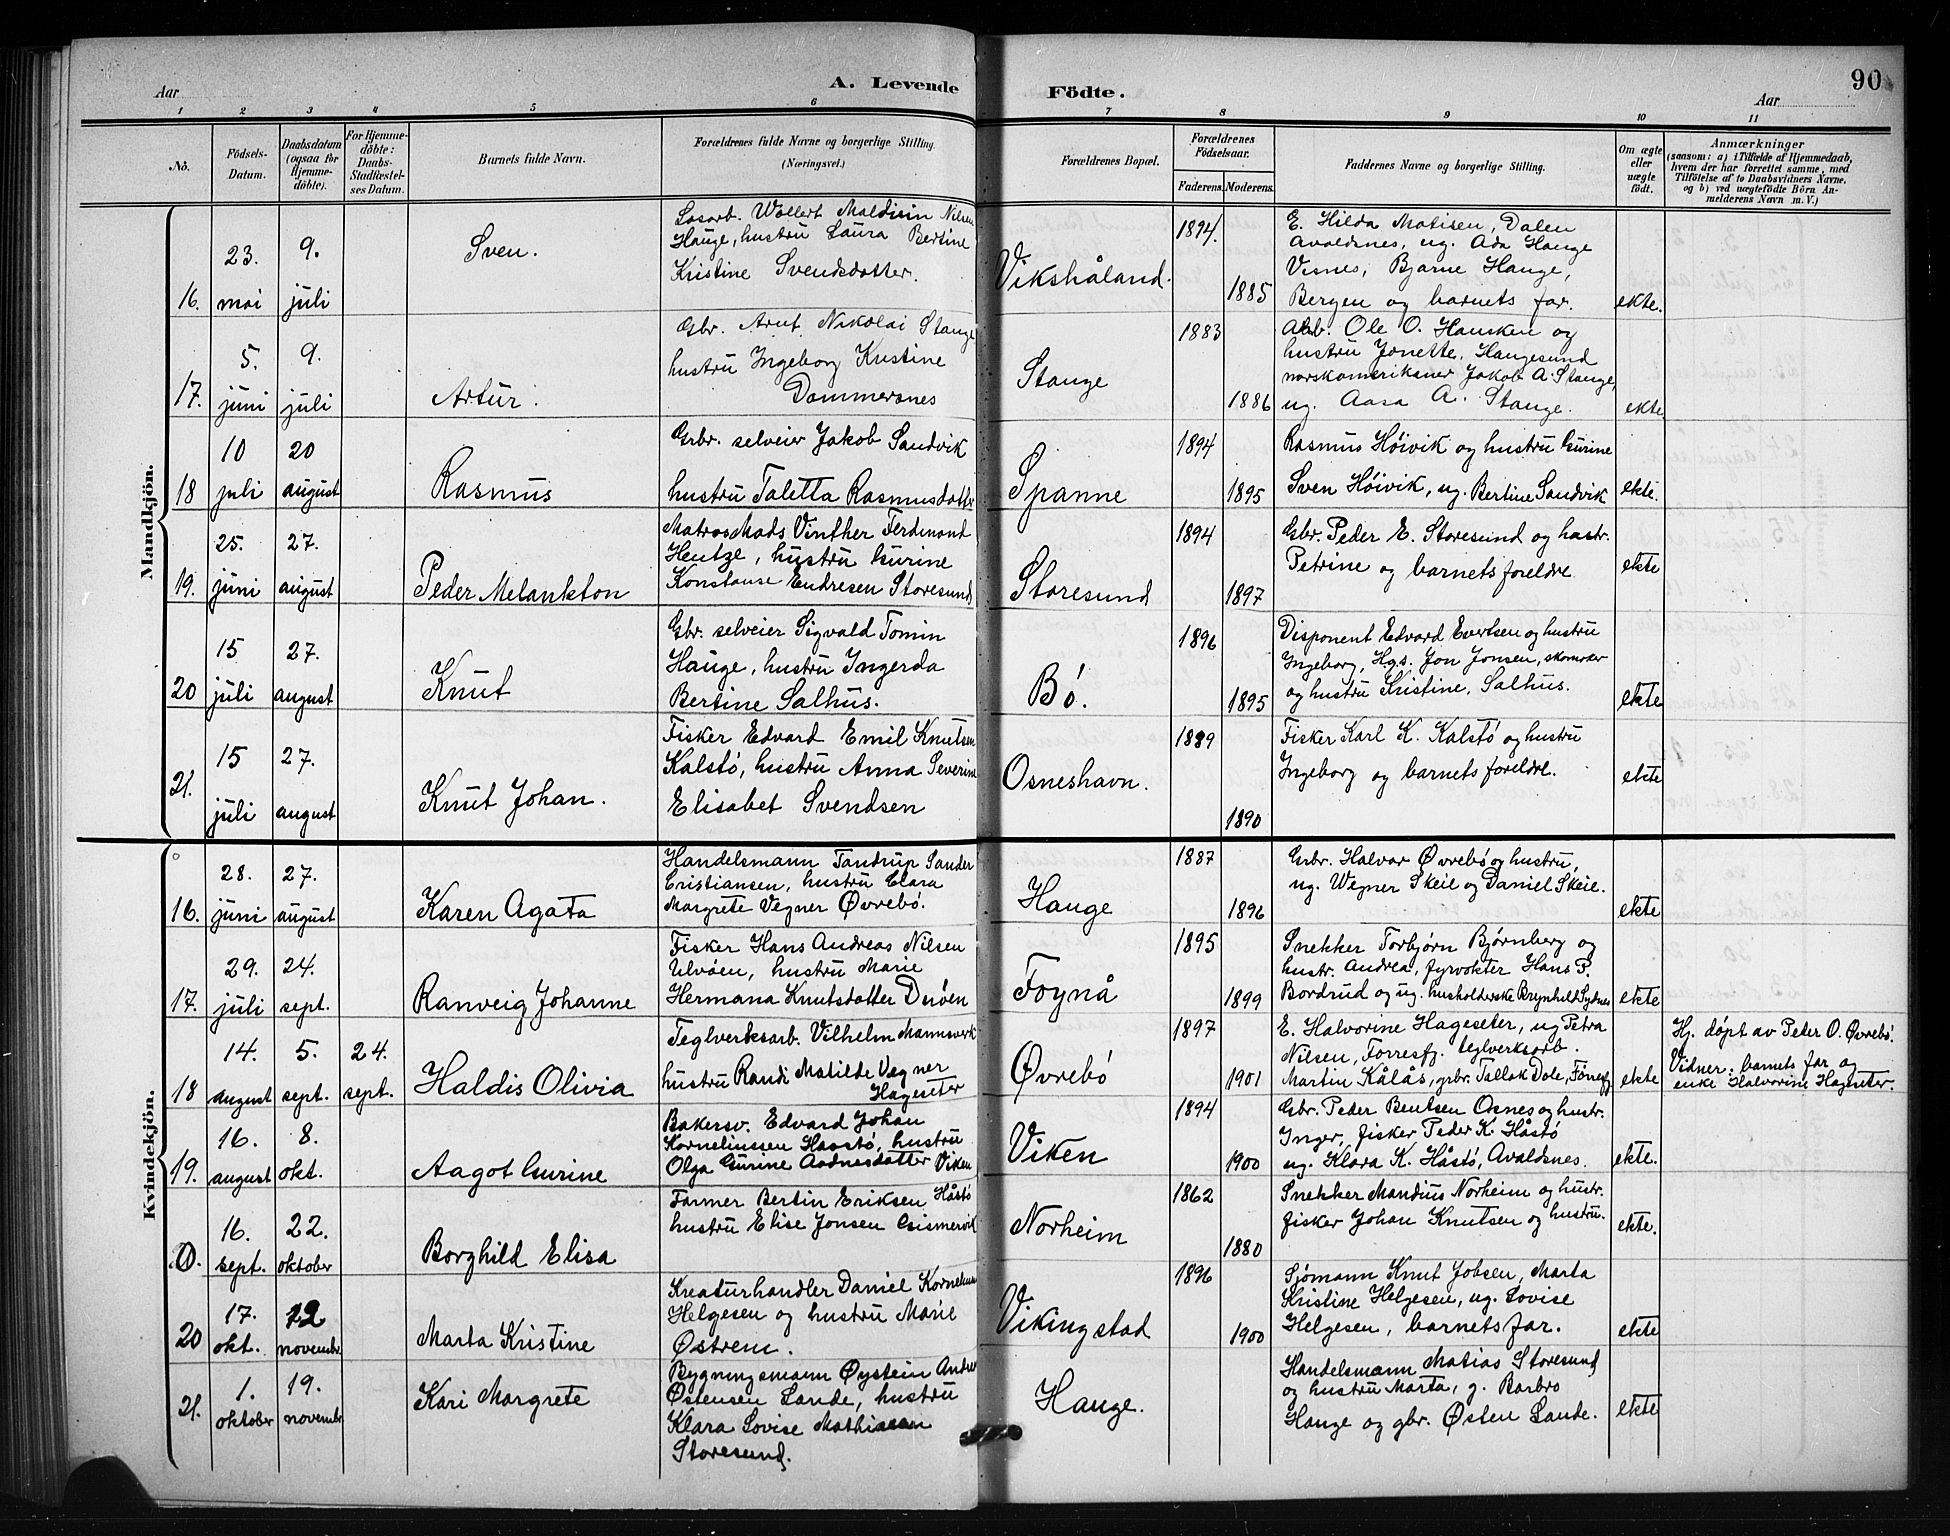 A. Levende Födte.
90
Aar
Aar
1 2 3 4 5 6 7 8 9 10 11
No.
Födsels-Datum.
Daabsdatum (ogsaa for Hjemme-döbte).
For Hjemme-döbte: Daabs-Stadfæstel-ses Datum.
Barnets fulde Navn.
Forældrenes fulde Navne og borgerlige Stilling. (Næringsvei.)
Forældrenes Bopæl.
Forældrenes Födselsaar.
Faderens. Moderens.
Faddernes Navne og borgerlige Stilling.
Om ægte eller uægte født.
Anmærkninger
(saasom: a) i Tilfælde af Hjemmedaab, hvem der har forrettet samme, med Tilföielse af to Daabsvidners Navne, og b) ved uægtefödte Börn An-melderens Navn m. V.)
Mandkjön.
16. 23. mai
9. juli
Sven.
Løsarb. Wollert Maldivin Nilsen
Hauge, hustru Laura Bertine
Kristine Svendsdotter.
Vikshåland.
1894.
1885
E. Hilda Matisen, Dalen
Avaldsnes, ug. Ada Hauge
Visnes, Bjarne Hauge,
Bergen og barnets far.
ekte.
17. 5. juni
9. juli
Artur.
Gbr. Arnt Nikolai Stange
hustru Ingeborg Kristine
Dommersnes
Stange
1883
1886
Arb. Ole O. Hausken og
hustru Jonette, Haugesund
norskamerikaner Jakob A. Stange,
ug. Aasa A. Stange.
ekte.
18 10 juli
20 august
Rasmus
Gbr. selveier Jakob Sandvik
hustru Taletta Rasmusdotter
Spanne
1894
1895
Rasmus Høivik og hustru Gurine
Sven Høivik, ug. Bertine Sandvik
ekte.
19. 25. juni
27. august
Peder Melankton
Matros Mads Vinther Ferdinand
Hentze, hustru Gurine
Konstanse Endresen Storesund
Storesund
1894
1897
Gbr. Peder E. Storesund og hustr.
Petrine og barnets foreldre
ekte
20 15 juli
27. august
Knut
Gbr. selveier Sigvald Tomin
Hauge, hustru Ingerda
Bertine Salhus.
Bó.
1896
1895
Disponent Edvard Evertsen og hustru
Ingeborg, Hgs. Jon Jonsen, skomaker
og hustru Kristine, Salhus.
ekte
21. 15 juli
27. august
Knut Johan.
Fisker Edvard Emil Knutsen
Kalstó, hustru Anna Severine
Elisabet Svendsen
Osneshavn.
1889
1890
Fisker Karl K. Kalstó og hustru
Ingeborg og barnets foreldre.
ekte
Kvindekjön.
16. 28. juni
27. august
Karen Agata
Handelsmann Tandrup Sander
Cristiansen, hustru Clara
Margrete Vegner Øvrebó.
Hauge
1887
1896
Gbr. Halvar Øvrebó og hustru,
ug. Wegner Skeie og Daniel Skeie.
ekte
17. 29. juli
24. sept.
Ranveig Johanne
Fisker Hans Andreas Nilsen
Ulvöen, hustru Marie
Hermana Knutsdotter
Foynå
1895
1899
Snekker Torbjørn Bjørnberg og
hustr. Andrea, fyrvokter Hans P.
Bordrud og ug. husholderske Brynhild Sydnes
ekte
18 14. august
5. sept.
24. sept.
Haldis Olivia
Teglverksarb. Vilhelm Mannsverk
hustru Randi Matilde Vagner
Hageseter
Øvrebó
1897
1901
E. Halvorine Hageseter, ug Petra
Nilsen, Forresfj. teglverksarb.
Martin Kålås, gbr. Tallak Dale, Førresfj
ekte
Hj. døpt av Peder O. Øvrebó.
Vidner: barnets far og
enke Halvorine Hageseter.
19. 16. august
8. okt.
Aagot Gurine
Bakersv. Edvard Johan
Korneliussen Haastó, hustru
Olga Gurine Aadnesdatter Viken
Viken
1894
1900
Gbr. Peder Bentsen Osnes og hustr.
Inger, fisker Peder K. Håstó
ug. Klara K. Håstó, Avaldsnes.
ekte.
0. 16. sept.
22. oktober
Borghild Elisa
Farmer Bertin Eriksen Håstó
hustru Elise Jonsen Gismervik
Norheim
1862
1880
Snekker Mandius Norheim og hustr.
fisker Johan Knutsen og hustru.
ekte.
20 17. okt.
12 novembr.
Marta Kristine
Kreaturhandler Daniel Kornelius
Helgesen og hustru Marie
Østrem.
Vikingstad
1896
1900
Sjómann Knut Jobsen, Marta
Kristine Helgesen, ug. Lovise
Helgesen, barnets far.
ekte
21. 1. oktober
19. novembr.
Kari Margrete
Bygningsmann Øystein Andreas
Østensen Lande, hustru
Klara Lovise Mathiasen
Storesund.
Hauge.
Handelsmann Matias Storesund
og hustru Marta, g. Barbro
Hauge og gbr. Østen Lande.
ekte